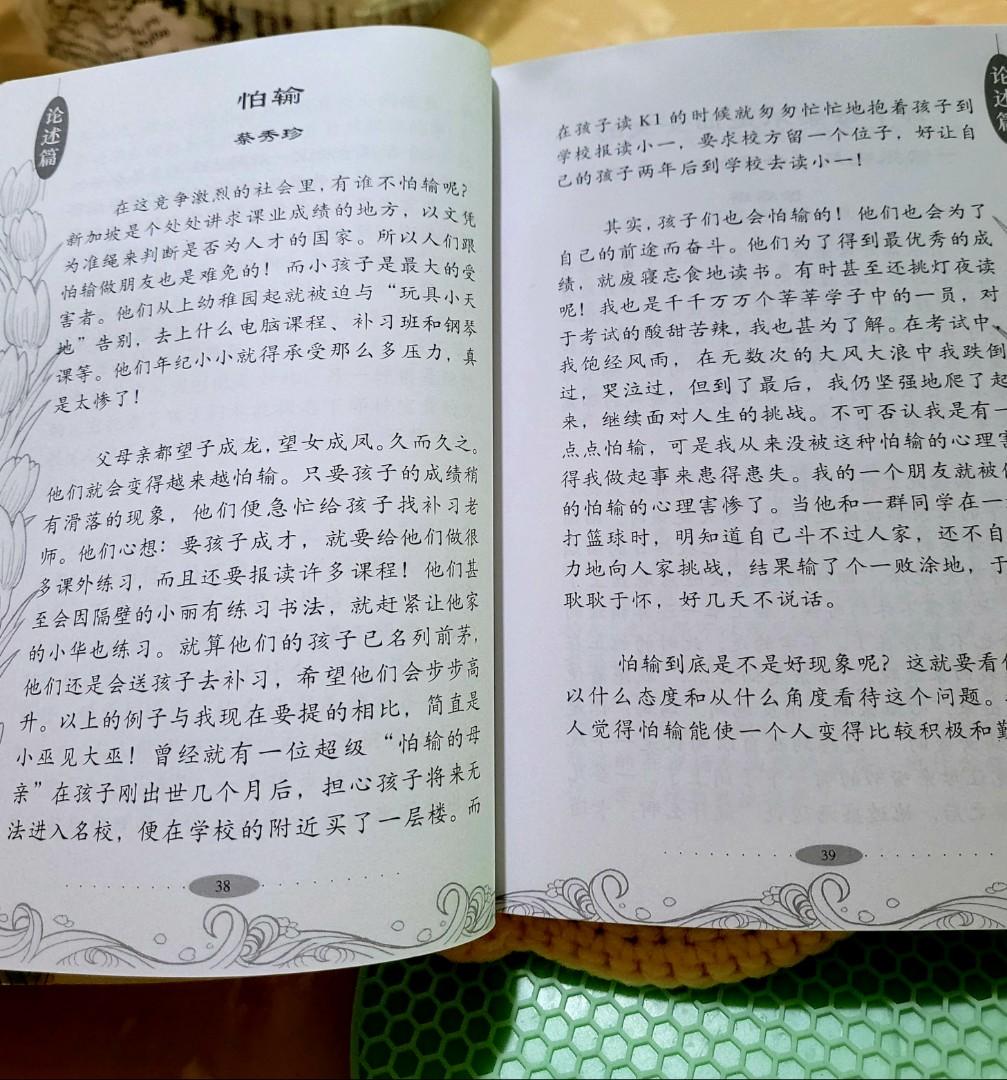 论述篇
怕输
蔡秀珍
在这竞争激烈的社会里，有谁不怕输呢？
新加坡是个处处讲求课业成绩的地方，以文凭
为准绳来判断是否为人才的国家。所以人们跟
怕输做朋友也是难免的！而小孩子是最大的受
害者。他们从上幼稚园起就被迫与“玩具小天
地”告别，去上什么电脑课程、补习班和钢琴
课等。他们年纪小小就得承受那么多压力，真
是太惨了！
父母亲都望子成龙，望女成凤。久而久之。
他们就会变得越来越怕输。只要孩子的成绩稍
有滑落的现象，他们便急忙给孩子找补习老
师。他们心想：要孩子成才，就要给他们做很
多课外练习，而且还要报读许多课程！他们甚
至会因隔壁的小丽有练习书法，就赶紧让他家
的小华也练习。就算他们的孩子已名列前茅，
他们还是会送孩子去补习，希望他们会步步高
升。以上的例子与我现在要提的相比，简直是
小巫见大巫！曾经就有一位超级“怕输的母
亲”在孩子刚出世几个月后，担心孩子将来无
法进入名校，便在学校的附近买了一层楼。而
38
论述篇
在孩子读K1的时候就匆匆忙忙地抱着孩子到
学校报读小一，要求校方留一个位子，好让自
己的孩子两年后到学校去读小一！
其实，孩子们也会怕输的！他们也会为了
自己的前途而奋斗。他们为了得到最优秀的成
绩，就废寝忘食地读书。有时甚至还挑灯夜读
呢！我也是千千万万个莘莘学子中的一员，对
于考试的酸甜苦辣，我也甚为了解。在考试中，
我饱经风雨，在无数次的大风大浪中我跌倒
过，哭泣过，但到了最后，我仍坚强地爬了起
来，继续面对人生的挑战。不可否认我是有一
点点怕输，可是我从来没被这种怕输的心理害
得我做起事来患得患失。我的一个朋友就被
的怕输的心理害惨了。当他和一群同学在一
打篮球时，明知道自己斗不过人家，还不自
力地向人家挑战，结果输了个一败涂地，于
耿耿于怀，好几天不说话。
怕输到底是不是好现象呢？这就要看
以什么态度和从什么角度看待这个问题。
人觉得怕输能使一个人变得比较积极和
39